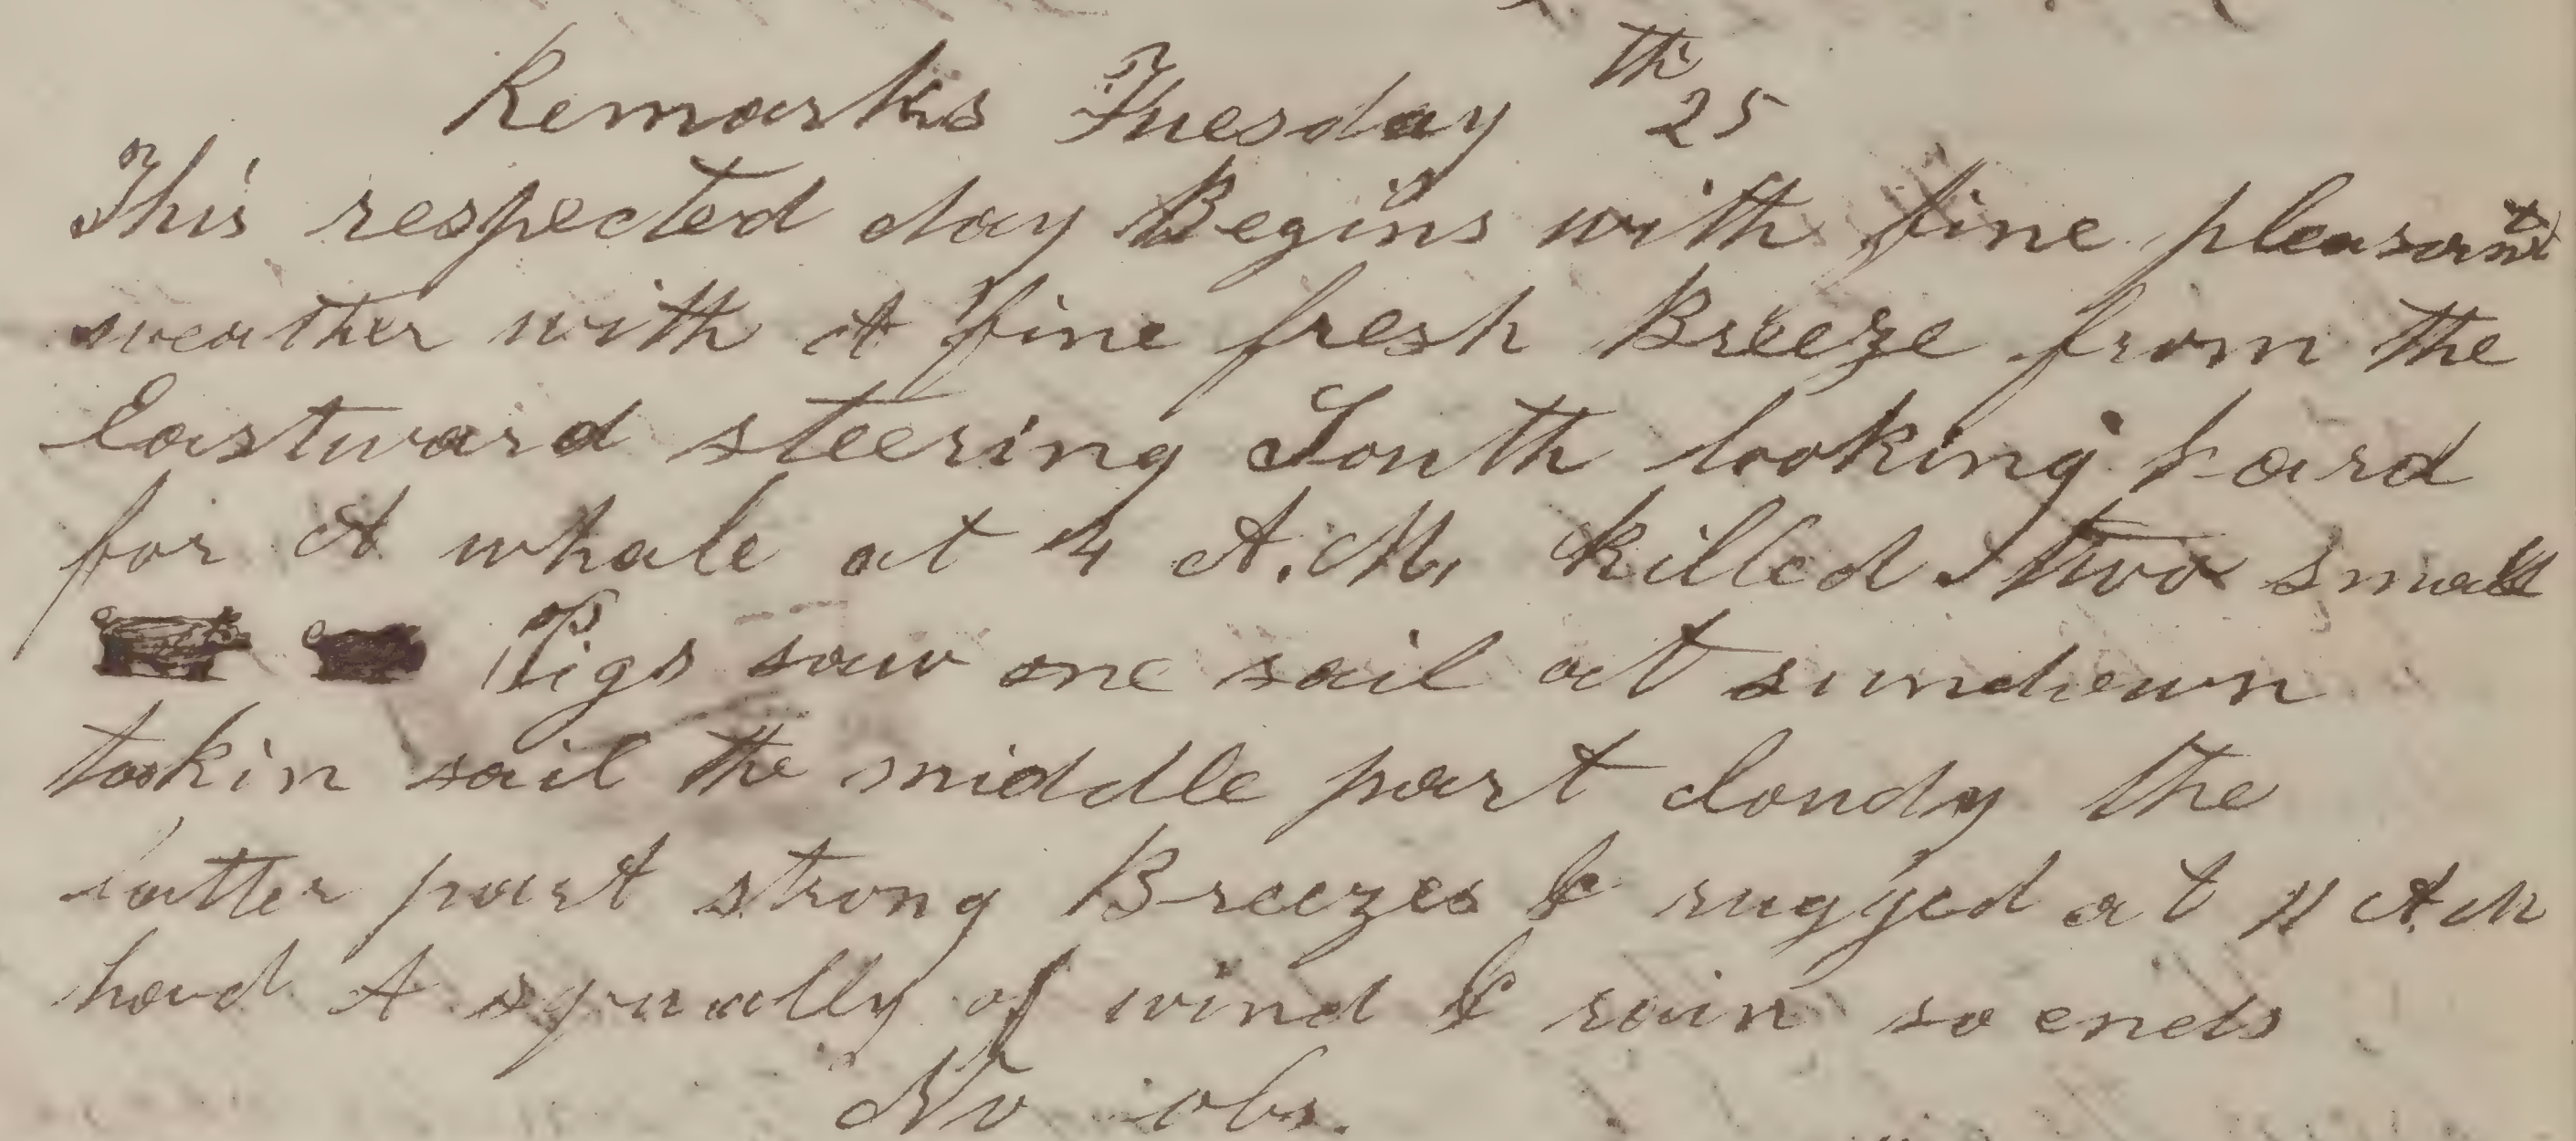 Remarks Tuesday 25th
This respected day Begins with fine pleasant
weather with A fine fresh Breeze from the
Eastward steering South looking hard
for A whale at 4 A.M. Killed two small
Pigs saw one sail at sundown
tookin sail the middle part cloudy the
latter part strong Breezes & rugged at 11 A.M
had A squally of wind & rain so ends
No obs.